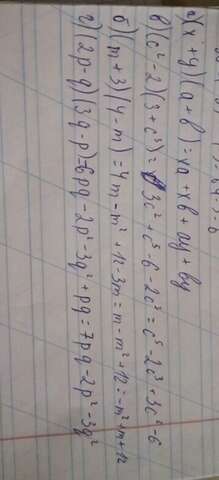 а)(x+y)(a+b)=xa+xb+ay+by
в)(c²-2)(3+c³)=3c²+c⁵-6-2c³=c⁵-2c³+3c²-6
б)(m+3)(4-m)=4m-m²+12-3m=m-m²+12=-m²+m+12
г)(2p-q)(3q-p)=6pq-2p²-3q²+pq=7pq-2p²-3q²